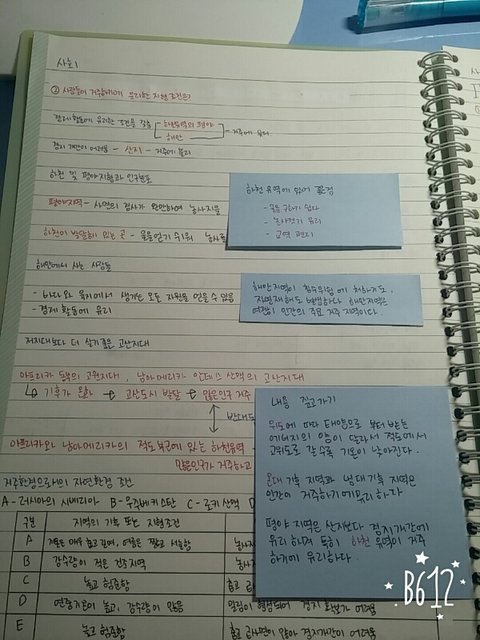 사회
② 사람들이 거주하기에 유리한 자연조건은?
경제활동에 유리한 조건을 갖춤
하천유역의 평야
해안
- 거주에 유리
경지 개간이 어려움 - 산지 - 거주에 불리
하천 및 평야지형과 인구분포
평야지역 - 사면의 경사가 완만하여 농사지음
하천이 발달해 있는 곳 - 물을 얻기 수월해 농사
해안에서 사는 사람들
- 바다와 육지에서 생기는 모든 자원을 얻을 수 있음
- 경제 활동에 유리
저지대보다 더 살기 좋은 고산지대
아프리카 동부의 고원지대, 남아메리카 안데스 산맥의 고산지대
기후가 온화 고산도시 발달 많은인구 거주
반대로
아프리카와 남아메리카의 적도 부근에 있는 하천유역
많은인구가 거주하고
거주환경으로서의 자연환경 조건
A - 러시아의 시베리아 B - 우즈베키스탄 C - 로키산맥 D
구분 지역의 기후 또는 지형조건
A 겨울은 매우 춥고 길며, 여름은 짧고 서늘함 농사
B 강수량이 적은 건조지역 농사
C 높고 험준함 춥고
D 연중기온이 높고, 강수량이 많음 밀림이 형성되어 경지 확보가 어려움
E 높고 험준함 춥고 급사면이 많아 경지개간이 어려움
하천 유역에 있어 좋은점
- 물을 구하기 쉽다
- 농사짓기 유리
- 교역 편리
해안지역이 침수위험에 처하기도,
자연재해도 발생하나 해안지역은
여전히 인간의 주요 거주 지역이다.
내용 짚고가기
위도에 따라 태양으로 부터 받는
에너지의 양이 달라서 적도에서
고위도로 갈수록 기온이 낮아진다.
온대 기후 지역과 냉대기후 지역은
인간이 거주하기에 유리하다
평야 지역은 산지보다 경지개간에
유리하며 특히 하천 유역이 거주
하기에 유리하다.
B612